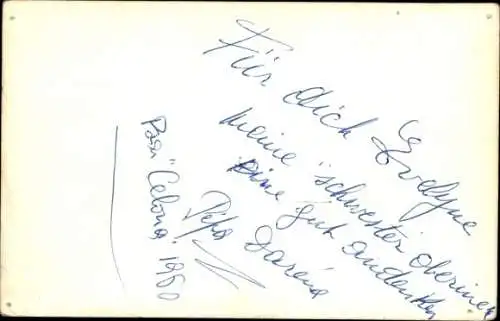 Für dich Evelyne
meine "schwester oberinen
eine gut andenken
Pepa Darena
Bar "Celona" 1960